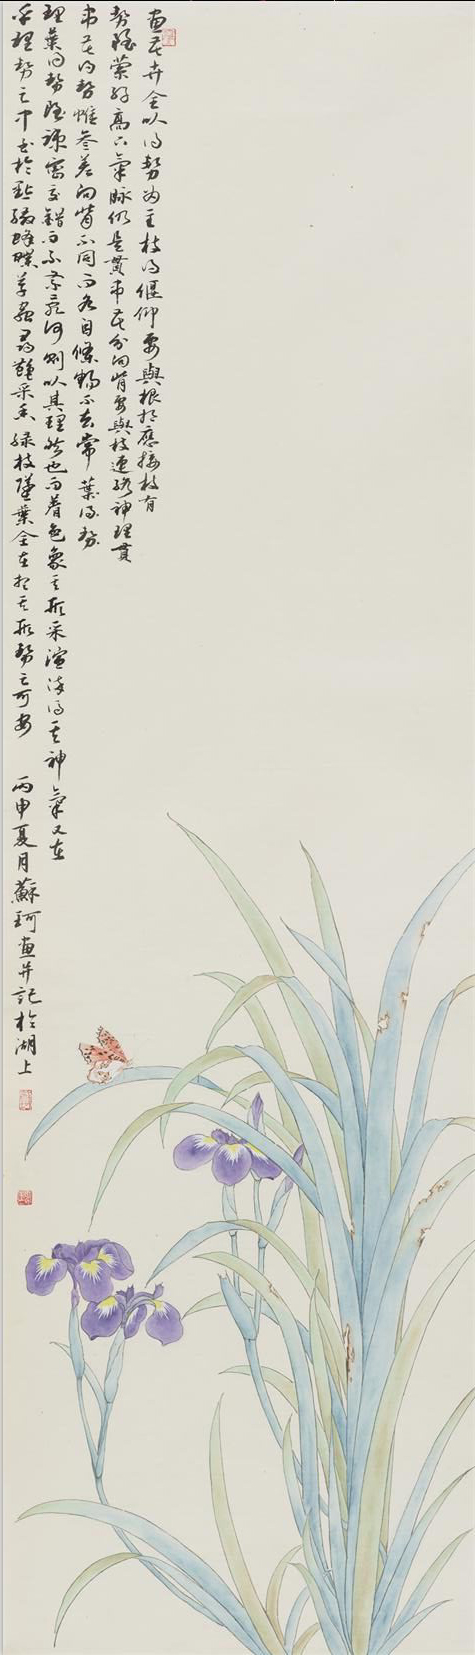 畫花卉全以得勢为主枝得偃仰要與根相應接枝有
勢雖縈紆高下氣脈仍是貫串花分向背要與枝連絡神理貫
串花得勢雖參差向背不同而各自條暢不去常葉得勢
理葉得勢雖疎密交錯而不紊亂何則以其理然也而着色象其形采渲染得其神氣又在
乎理勢之中至於點綴蜂蝶草蟲尋艷采香緣枝墜葉全在想其形勢之可安 丙申夏月蘇珂畫并記於湖上